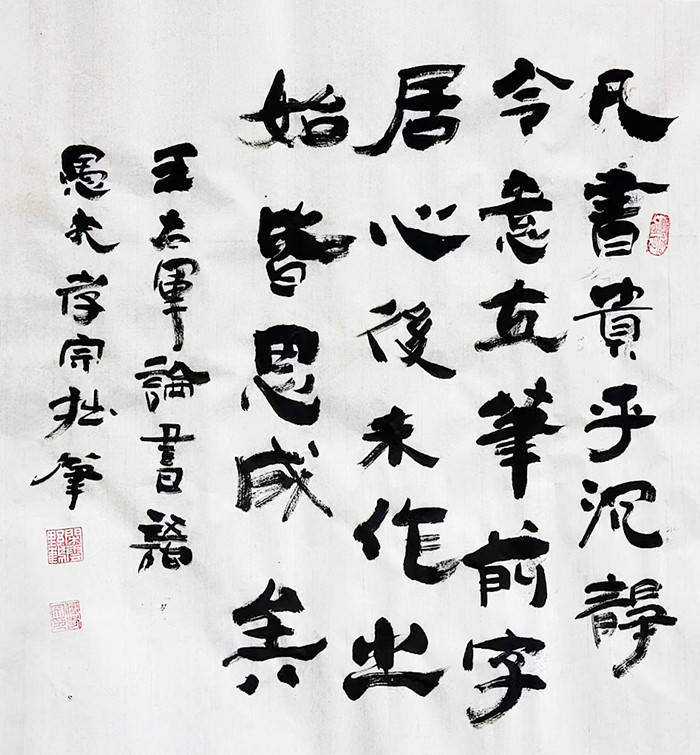 凡書貴乎沉靜
令意在筆前字
居心後未作之
始皆思成矣
王右軍論書
愚夫宗拙筆